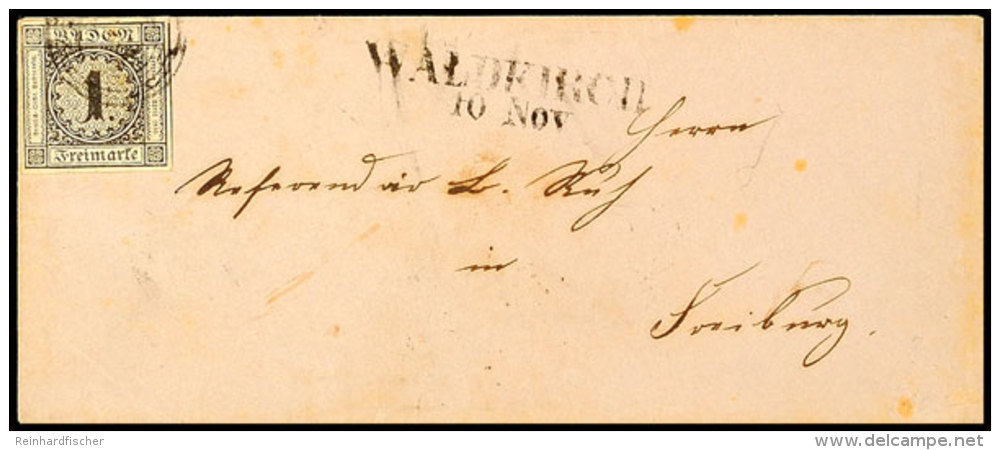 BADEN
1
Freimarke
WALDKIRCH
10 Nov
Herrn
Referendär L. Ruf
in
Freiburg.
Reinhardfischer
www.delcampe.net